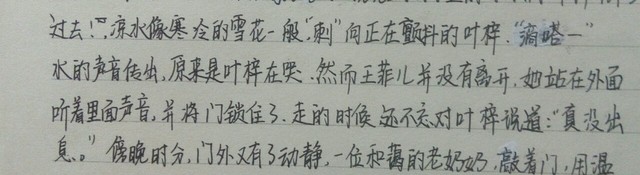 过去！”凉水像寒冷的雪花一般“刺”向正在颤抖的叶梓。“滴嗒一”
水的声音传出，原来是叶梓在哭。然而王菲儿并没有离开，她站在外面
听着里面声音，并将门锁住了。走的时候还不忘对叶梓说道：“真没出
息。”傍晚时分，门外又有了动静，一位和蔼的老奶奶，敲着门，用温